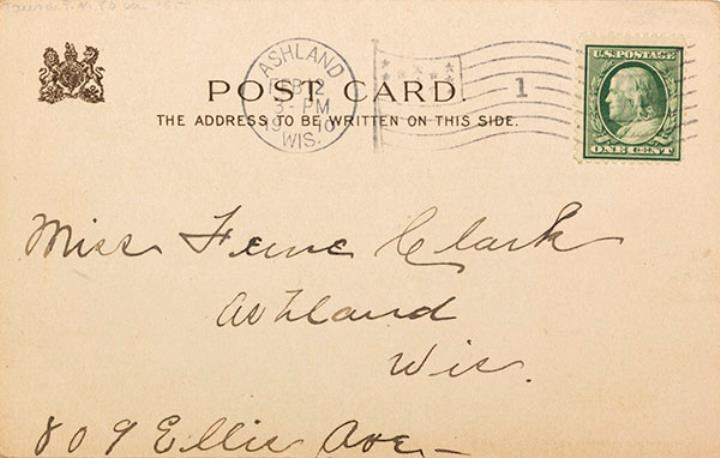 ASHLAND
FEB 12
3 - PM
1910
WIS.
1
U.S. POSTAGE
ONE CENT
POST CARD.
THE ADDRESS TO BE WRITTEN ON THIS SIDE.
Miss Ferne Clark
Ashland
Wis.
809 Ellis Ave.